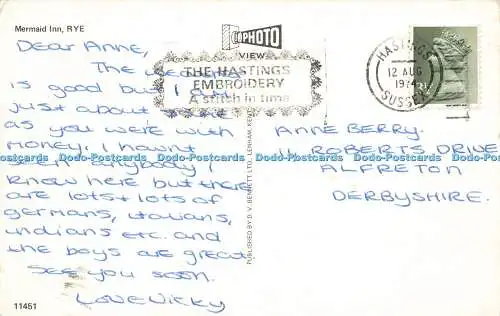 Mermaid Inn, RYE
Dear Anne,
The weather
is good but I am
just about broke
as you were with
money. I havnt
seen anybody I
know here but there
are lots + lots of
germans, italians,
indians etc. and
the boys are great
See you soon.
Love Vicky
11451
PHOTO
VIEW
THE HASTINGS
EMBROIDERY
A stitch in time
HASTINGS
12 AUG
1974
SUSSEX
ANNE BERRY.
11, ROBERTS DRIVE
ALFRETON
DERBYSHIRE.
PUBLISHED BY D. V. BENNETT LTD., LENHAM, KENT
Dodo-Postcards Dodo-Postcards Dodo-Postcards Dodo-Postcards Dodo-Postcards Dodo-Postcards Dodo-Postcards